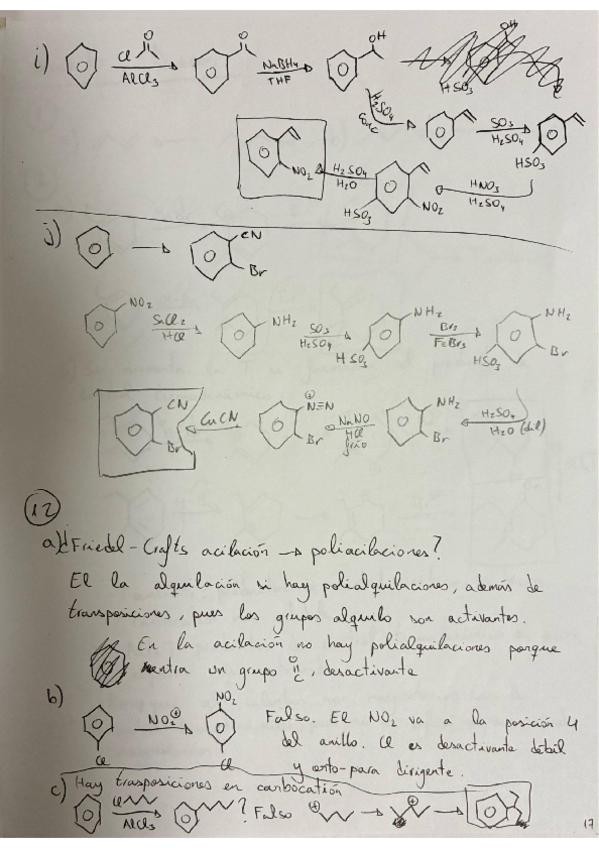 i)
Cl
O
AlCl3
O
NaBH4
THF
OH
OH
HSO3
H2SO4
conc
SO3
H2SO4
HSO3
HNO3
H2SO4
HSO3
NO2
H2SO4
H2O
NO2
j)
CN
Br
NO2
SnCl2
HCl
NH2
SO3
H2SO4
HSO3
NH2
Br2
FeBr3
NH2
Br
HSO3
H2SO4
H2O (dil)
NH2
Br
NaNO
HCl
frío
N≡N
Br
CuCN
CN
Br
12
a) ¿Friedel-Crafts acilación → poliacilaciones?
El la alquilación si hay polialquilaciones, además de
transposiciones, pues los grupos alquilo son activantes.
En la acilación no hay polialquilaciones porque
un grupo O=C, desactivante
b)
Cl
NO2⊕
NO2
Cl
Falso. El NO2 va a la posición 4
del anillo. Cl es desactivante débil
y orto-para dirigente.
c) Hay trasposiciones en carbocatión
Cl
AlCl3
? Falso
17